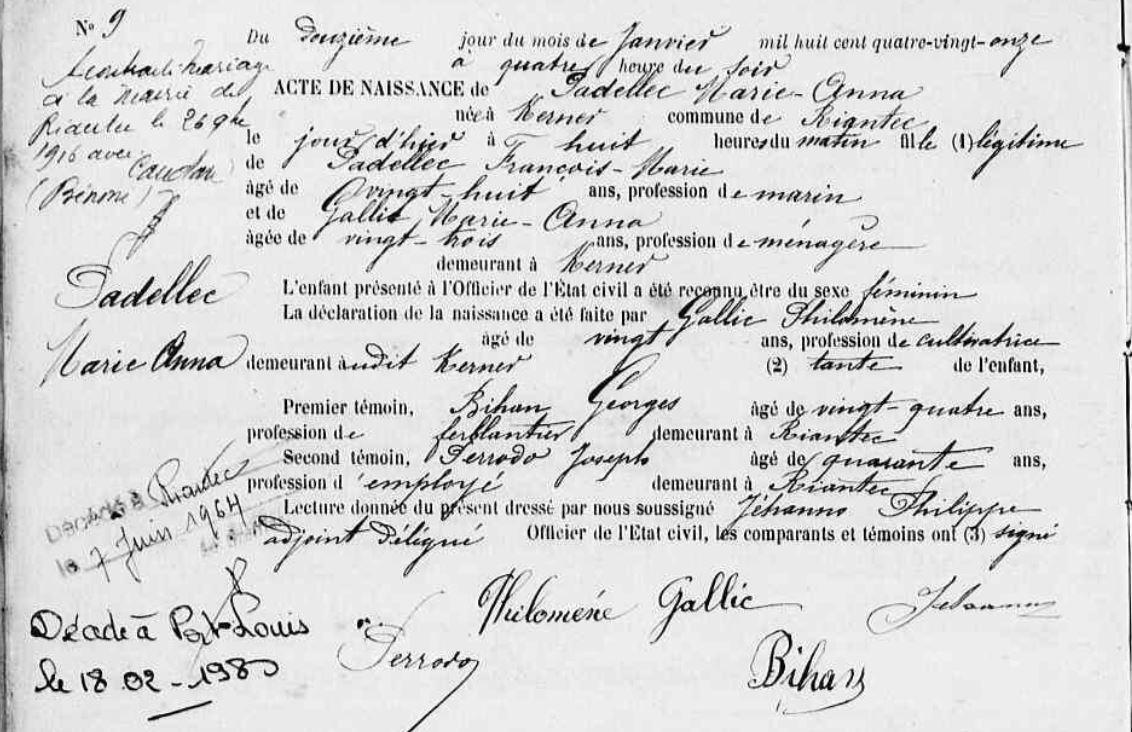 N° 9
A contracté mariage
à la mairie de
Riantec le 26 9bre
1916 avec
Caudan
(Bénoni)
Padellec
Marie Anna
Décédé à Riantec
le 7 Juin 1964
Décade à Port-Louis
le 18 02 - 1980
Du douzième jour du mois de Janvier mil huit cent quatre-vingt-onze
à quatre heure du soir
ACTE DE NAISSANCE de Padellec Marie-Anna
née à Kerner commune de Riantec
le jour d'hier à huit heures du matin fille (1) légitime
de Padellec François-Marie
âgé de vingt-huit ans, profession de marin
et de Gallic Marie-Anna
âgée de vingt-trois ans, profession de ménagère
demeurant à Kerner
L'enfant présenté à l'Officier de l'État civil a été reconnu être du sexe féminin
La déclaration de la naissance a été faite par Gallic Philomène
âgé de vingt ans, profession de cultivatrice
demeurant audit Kerner (2) tante de l'enfant,
Premier témoin, Bihan Georges âgé de vingt-quatre ans,
profession de ferblantier demeurant à Riantec
Second témoin, Perrodo Joseph âgé de quarante ans,
profession d'employé demeurant à Riantec
Lecture donnée du présent dressé par nous soussigné Jéhanno Philippe
adjoint délégué Officier de l'Etat civil, les comparants et témoins ont (3) signé
Philomène Gallic Jehanno
Perrodo
Bihan